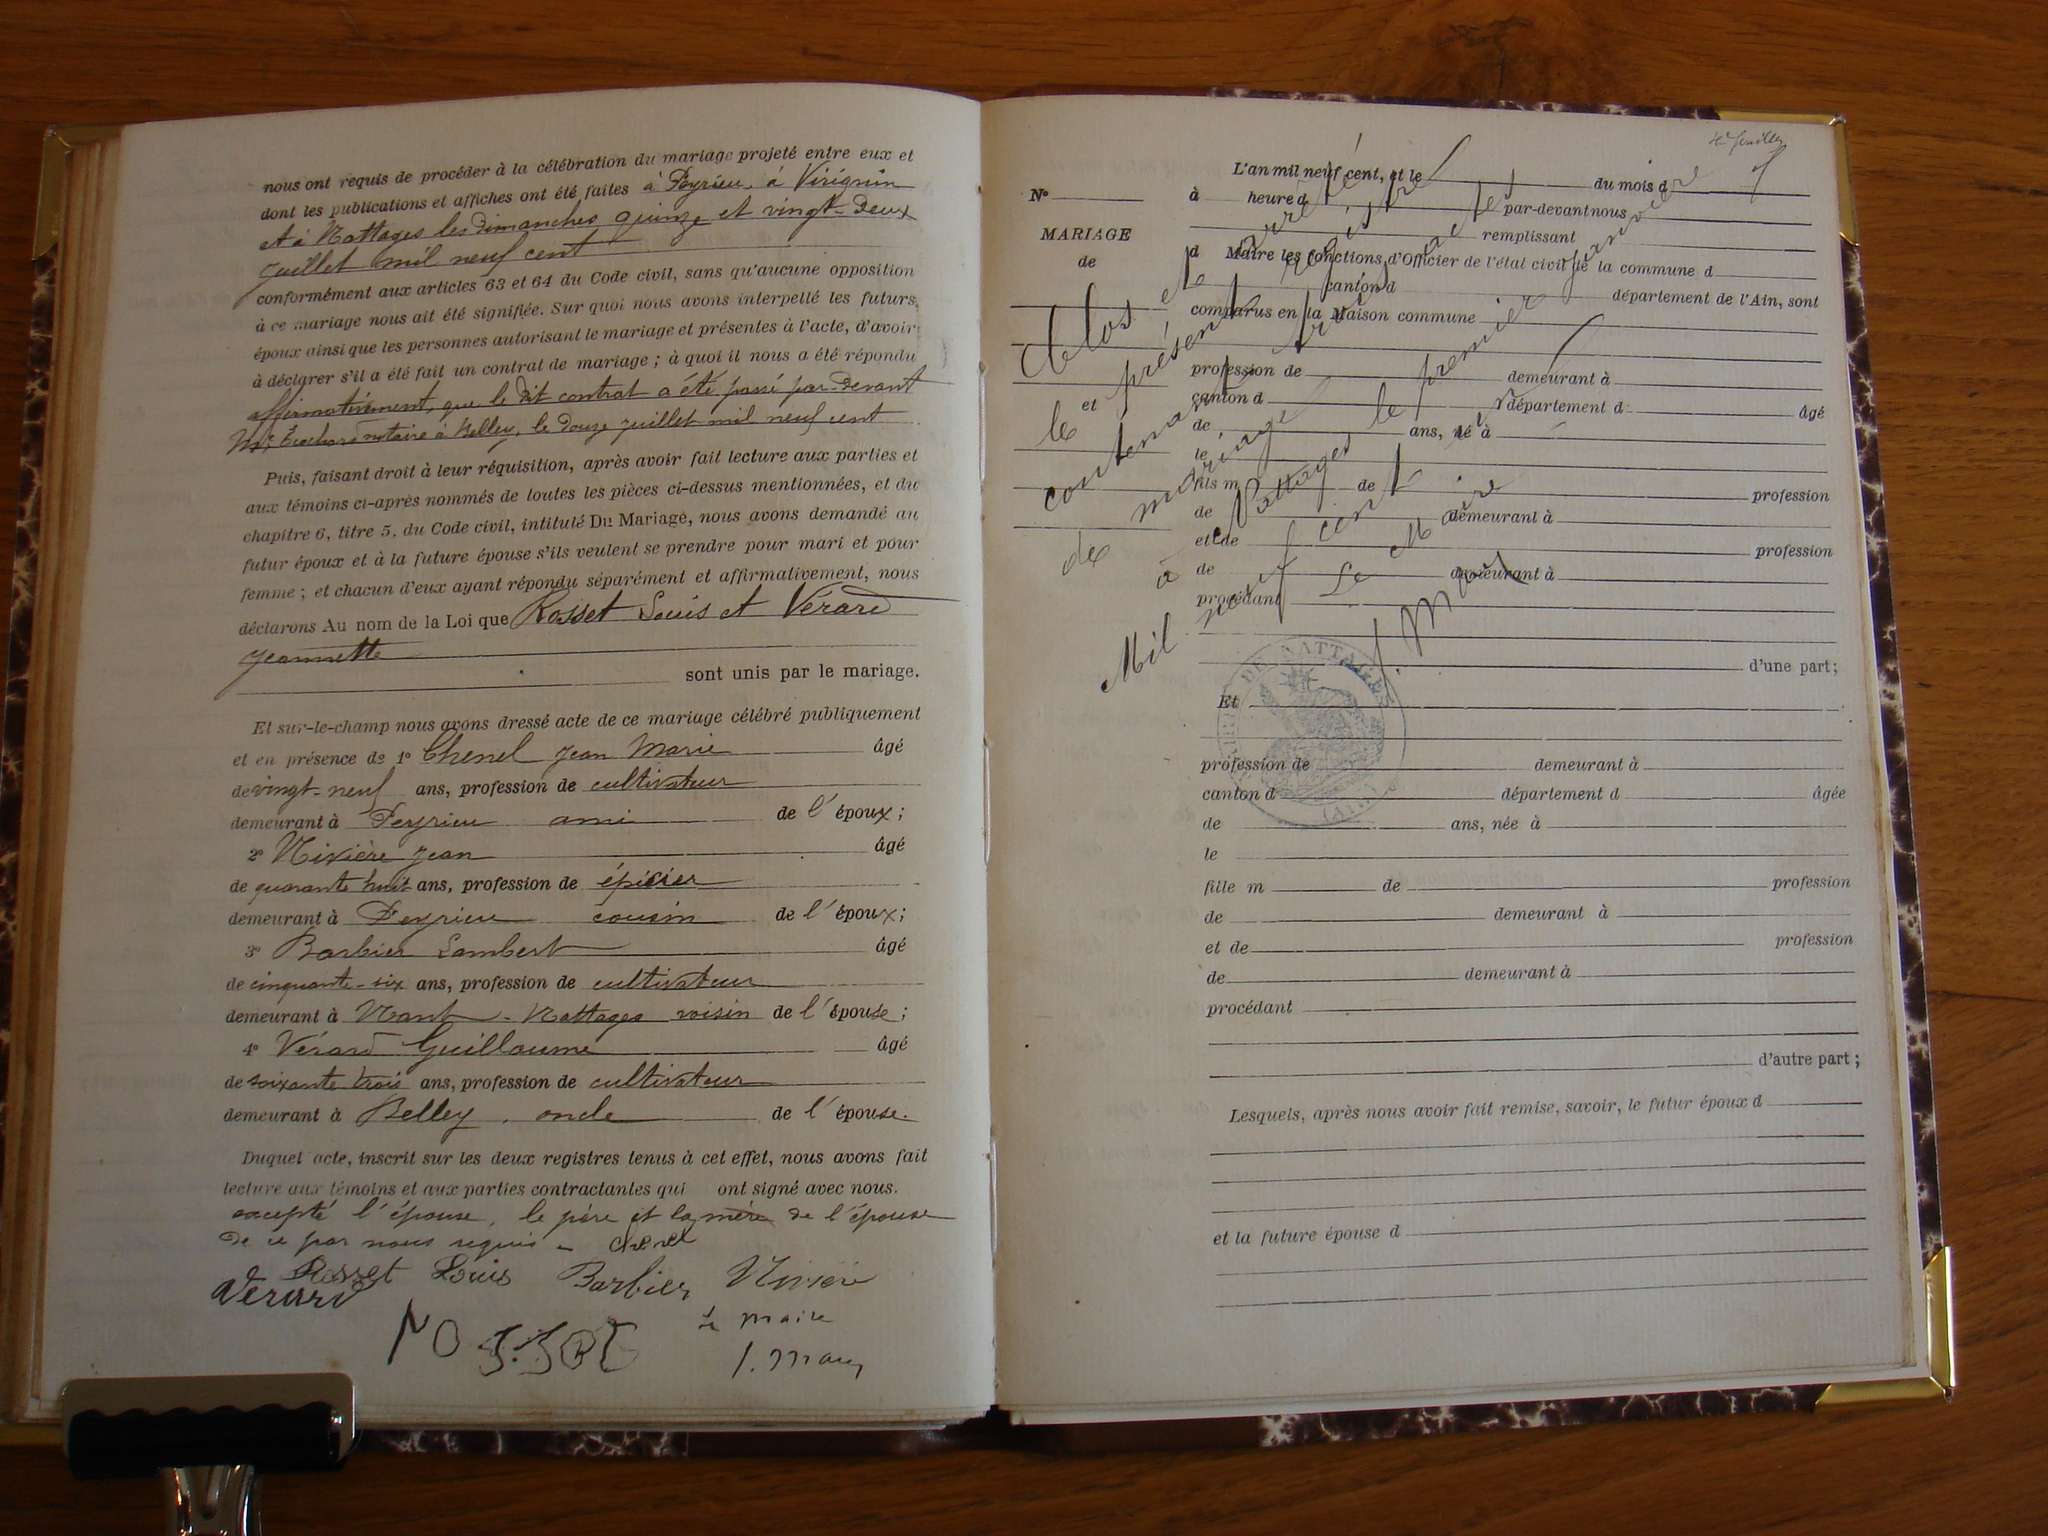 nous ont requis de procéder à la célébration du mariage projeté entre eux et
dont les publications et affiches ont été faites à Peyrieu, à Virignin
et à Nattages les dimanches quinze et vingt-deux
juillet mil neuf cent
conformément aux articles 63 et 64 du Code civil, sans qu'aucune opposition
à ce mariage nous ait été signifiée. Sur quoi nous avons interpellé les futurs
époux ainsi que les personnes autorisant le mariage et présentes à l'acte, d'avoir
à déclarer s'il a été fait un contrat de mariage ; à quoi il nous a été répondu
affirmativement, que le dit contrat a été passé par-devant
notaire à Belley, le douze juillet mil neuf cent
Puis, faisant droit à leur réquisition, après avoir fait lecture aux parties et
aux témoins ci-après nommés de toutes les pièces ci-dessus mentionnées, et du
chapitre 6, titre 5, du Code civil, intitulé Du Mariage, nous avons demandé au
futur époux et à la future épouse s'ils veulent se prendre pour mari et pour
femme ; et chacun d'eux ayant répondu séparément et affirmativement, nous
déclarons Au nom de la Loi que Rosset Louis et Vérard
Jeannette
sont unis par le mariage.
Et sur-le-champ nous avons dressé acte de ce mariage célébré publiquement
et en présence de 1° Chenel Jean Marie âgé
de vingt-neuf ans, profession de cultivateur
demeurant à Peyrieu ami de l'époux ;
2° Nivière Jean âgé
de quarante huit ans, profession de épicier
demeurant à Peyrieu cousin de l'époux ;
3° Barbier Lambert âgé
de cinquante-six ans, profession de cultivateur
demeurant à Nant - Nattages voisin de l'épouse ;
4° Vérard Guillaume âgé
de soixante trois ans, profession de cultivateur
demeurant à Belley, oncle de l'épouse.
Duquel acte, inscrit sur les deux registres tenus à cet effet, nous avons fait
lecture aux témoins et aux parties contractantes qui ont signé avec nous.
excepté l'épouse, le père et la mère de l'épouse
de ce par nous requis - Chenel
Rosset Louis Barbier Nivière
Verard
rosset
Le maire
J.
4e feuillet
L'an mil neuf cent, et le du mois d
N° à heure d par-devant nous
MARIAGE remplissant
de
d Maire les fonctions d'Officier de l'état civil de la commune d
canton d département de l'Ain, sont
comparus en la Maison commune
profession de demeurant à
et
canton d département d âgé
de ans, né à
le
fils m de profession
de demeurant à
et de profession
de demeurant à
procédant
d'une part ;
Et
profession de demeurant à
canton d département d âgée
de ans, née à
le
fille m de profession
de demeurant à
et de profession
de demeurant à
procédant
d'autre part ;
Lesquels, après nous avoir fait remise, savoir, le futur époux d
et la future épouse d
Clos et arrêté
le présent registre
contenant les actes
de mariage
à Nattages le premier janvier
Mil neuf cent un
Le Maire
J.
MAIRIE DE NATTAGES
(AIN)